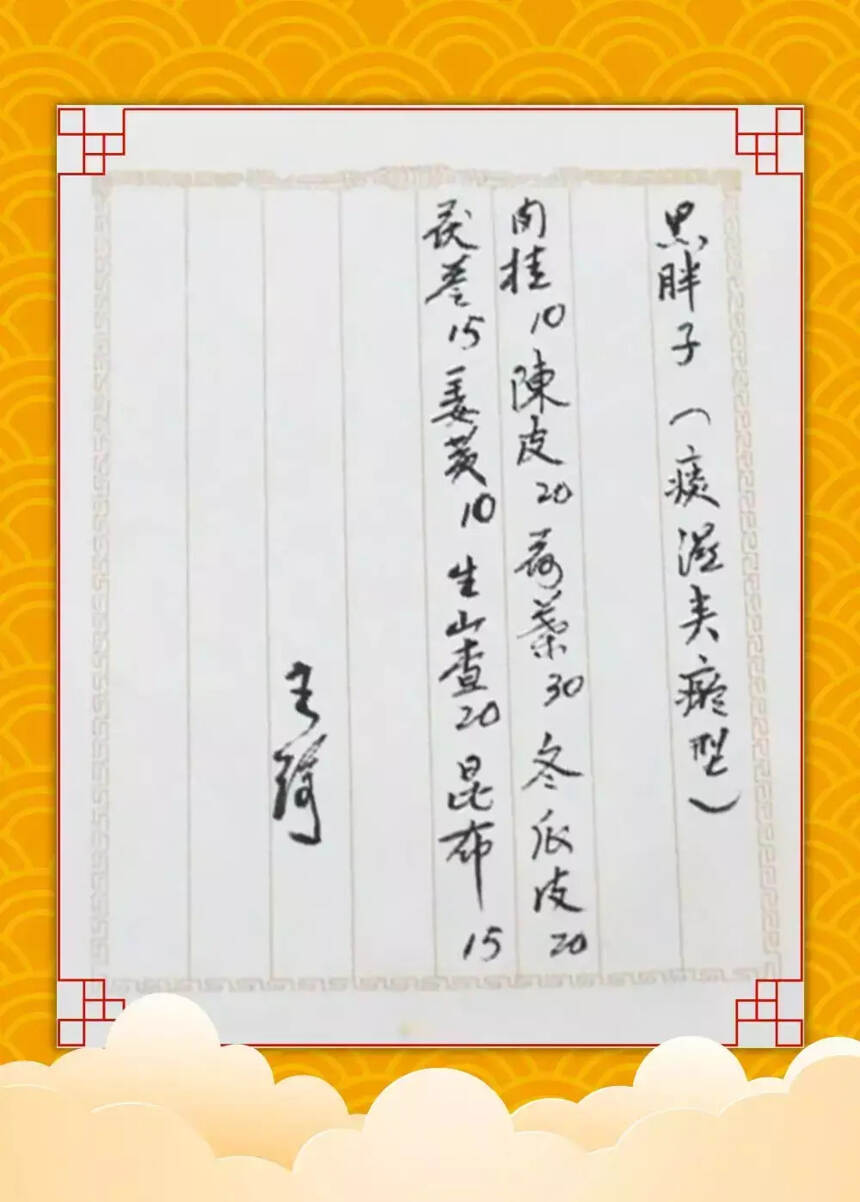 黑胖子（痰湿夹瘀型）
肉桂10 陳皮20 荷葉30 冬瓜皮20
茯苓15 姜黄10 生山查20 昆布15
王琦